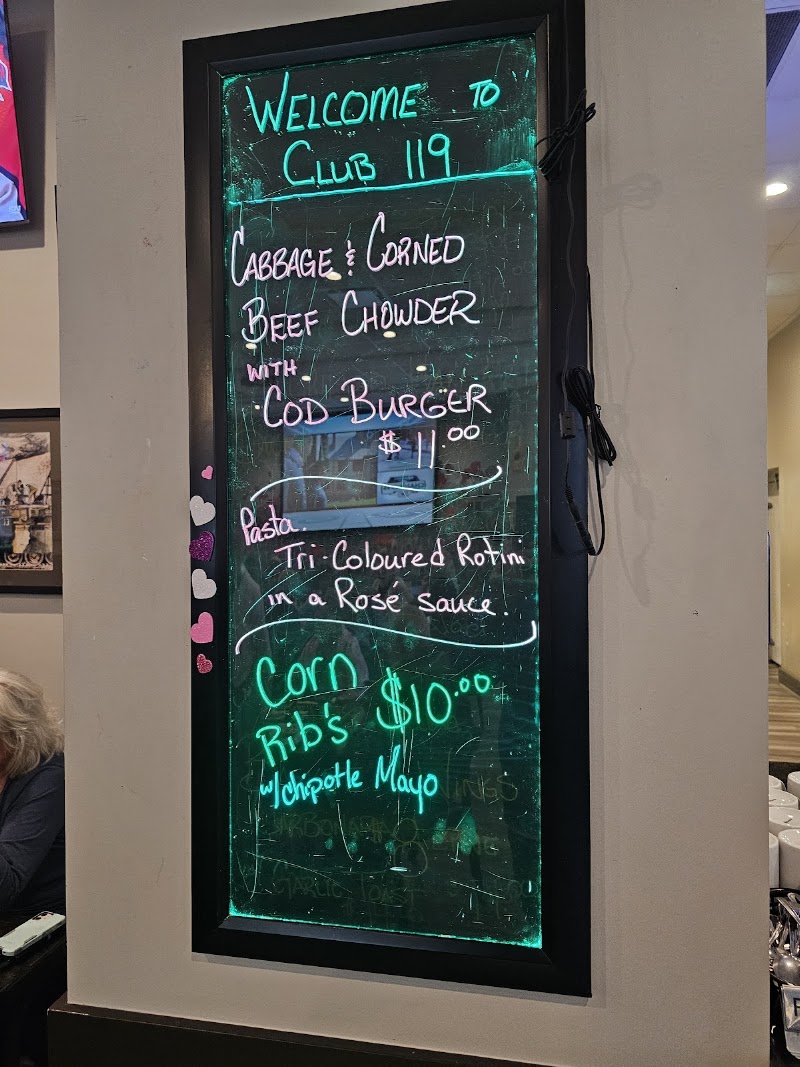 WELCOME TO
CLUB 119
CABBAGE & CORNED
BEEF CHOWDER
WITH
COD BURGER
$11.00
Pasta.
Tri-Coloured Rotini
in a Rosé sauce.
Corn
Rib's $10.00
w/chipotle Mayo
GARLIC TOAST